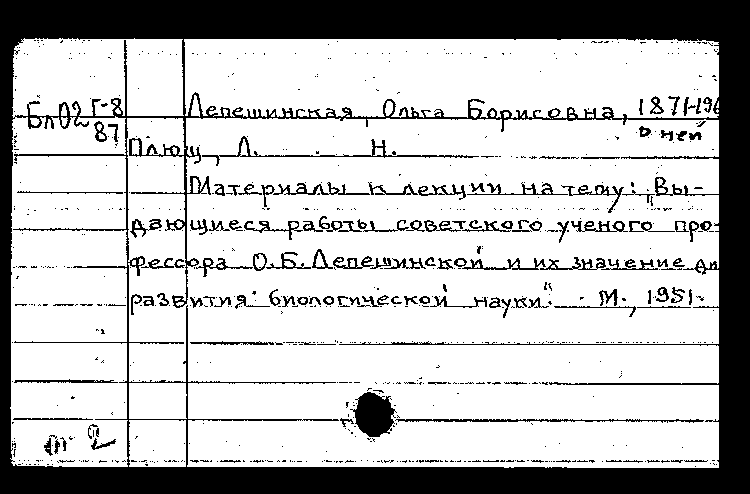 БлО2 Г-8 Лепешинская, Ольга Борисовна, 1871-196
87 о ней
Плющ, Л. Н.
Материалы к лекции на тему: „Вы-
дающиеся работы советского ученого про-
фессора О.Б.Лепешинской и их значение дл
развития биологической науки". - М., 1951.
2